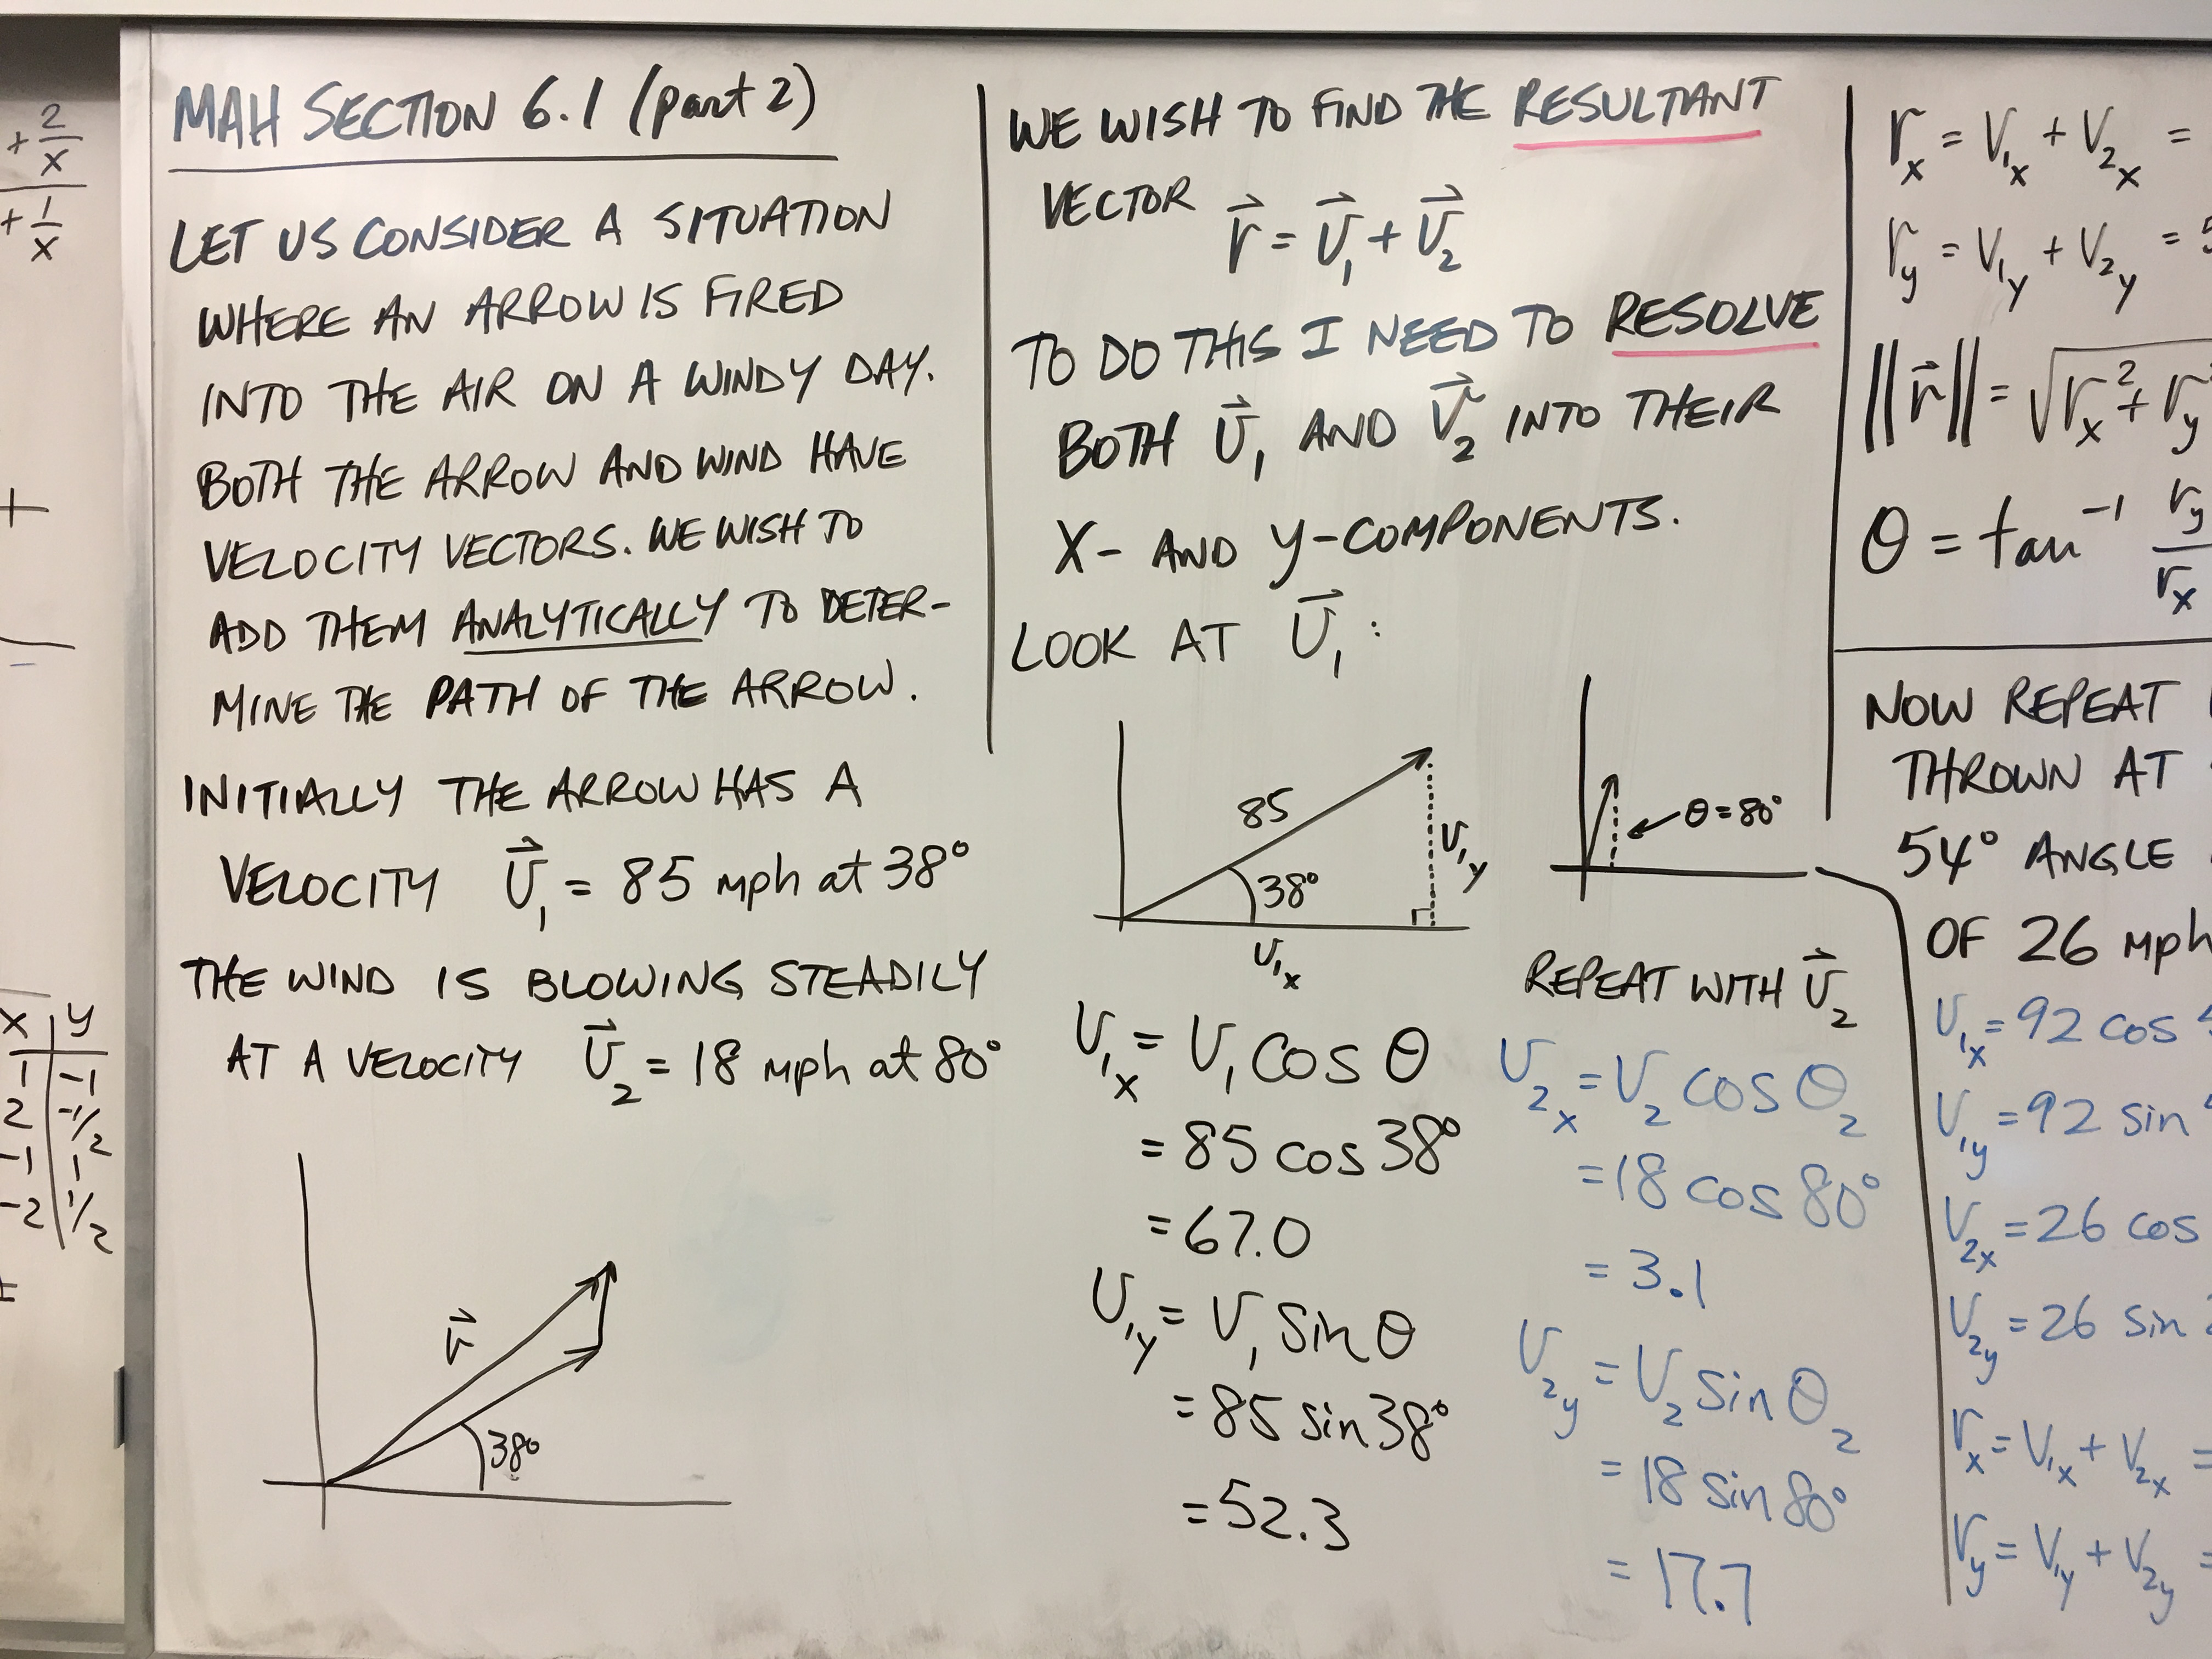 + 2/x
+ 1/x
+
x | y
1 | -1
2 | -1/2
-1 | 1
-2 | 1/2
MAH SECTION 6.1 (part 2)
LET US CONSIDER A SITUATION
WHERE AN ARROW IS FIRED
INTO THE AIR ON A WINDY DAY.
BOTH THE ARROW AND WIND HAVE
VELOCITY VECTORS. WE WISH TO
ADD THEM ANALYTICALLY TO DETER-
MINE THE PATH OF THE ARROW.
INITIALLY THE ARROW HAS A
VELOCITY v⃗₁ = 85 mph at 38°
THE WIND IS BLOWING STEADILY
AT A VELOCITY v⃗₂ = 18 mph at 80°
r⃗
38°
WE WISH TO FIND THE RESULTANT
VECTOR r⃗ = v⃗₁ + v⃗₂
TO DO THIS I NEED TO RESOLVE
BOTH v⃗₁ AND v⃗₂ INTO THEIR
X- AND Y-COMPONENTS.
LOOK AT v⃗₁ :
85
38°
v₁y
v₁x
v₁x = v₁ cos θ
= 85 cos 38°
= 67.0
v₁y = v₁ sin θ
= 85 sin 38°
= 52.3
θ = 80°
REPEAT WITH v⃗₂
v₂x = v₂ cos θ₂
= 18 cos 80°
= 3.1
v₂y = v₂ sin θ₂
= 18 sin 80°
= 17.7
rx = v₁x + v₂x =
ry = v₁y + v₂y = 5
||r⃗|| = √rx² + ry²
θ = tan⁻¹ ry/rx
NOW REPEAT
THROWN AT
54° ANGLE
OF 26 mph
v₁x = 92 cos
v₁y = 92 sin
v₂x = 26 cos
v₂y = 26 sin
rx = v₁x + v₂x =
ry = v₁y + v₂y =